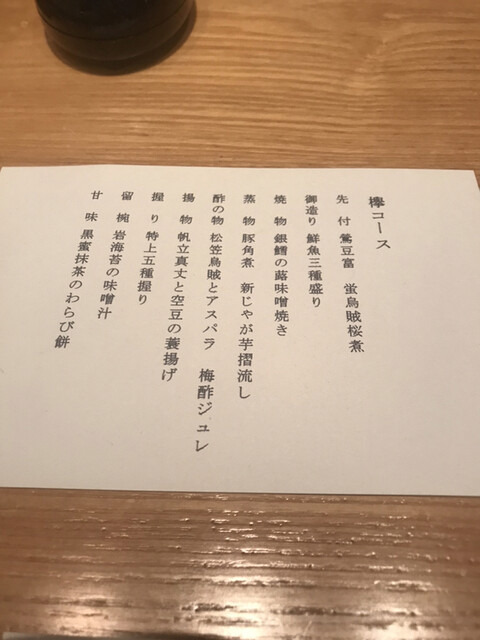 欅コース
先付 鶯豆富 蛍烏賊桜煮
御造り 鮮魚三種盛り
焼物 銀鱈の蕗味噌焼き
蒸物 豚角煮 新じゃが芋摺流し
酢の物 松笠烏賊とアスパラ 梅酢ジュレ
揚物 帆立真丈と空豆の蓑揚げ
握り 特上五種握り
留椀 岩海苔の味噌汁
甘味 黒蜜抹茶のわらび餅